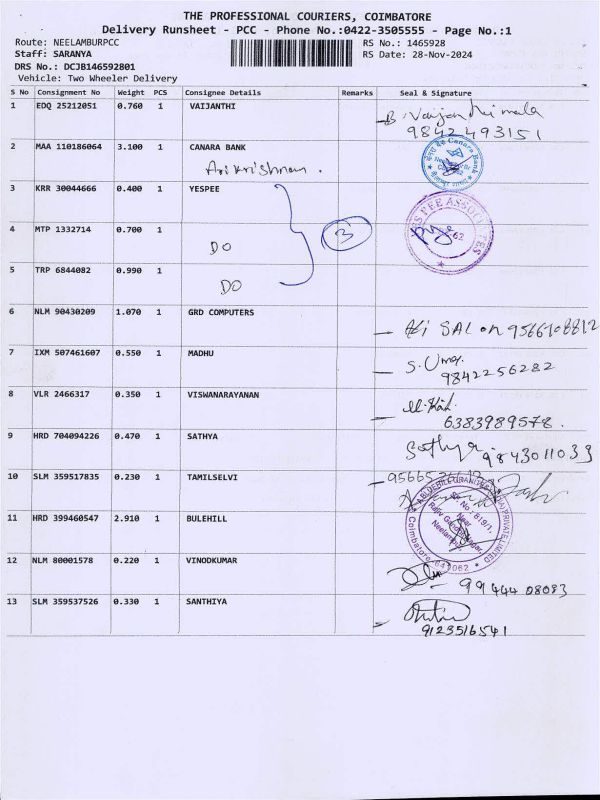 THE PROFESSIONAL COURIERS, COIMBATORE
Delivery Runsheet - PCC - Phone No.:0422-3505555 - Page No.:1
Route: NEELAMBURPCC RS No.: 1465928
Staff: SARANYA RS Date: 28-Nov-2024
DRS No.: DCJB146592801
Vehicle: Two Wheeler Delivery
S No Consignment No Weight PCS Consignee Details Remarks Seal & Signature
1 EDQ 25212051 0.760 1 VAIJANTHI B. Vaijanthimala
9842493151
2 MAA 110186064 3.100 1 CANARA BANK Canara Bank
Arikrishnan.
3 KRR 30044666 0.400 1 YESPEE
4 MTP 1332714 0.700 1 3
DO
5 TRP 6844082 0.990 1
DO
6 NLM 90430209 1.070 1 GRD COMPUTERS
9566108812
7 IXM 507461607 0.550 1 MADHU S. Uma
9842256282
8 VLR 2466317 0.350 1 VISWANARAYANAN
6383989578.
9 HRD 704094226 0.470 1 SATHYA Sathya 9843011033
10 SLM 359517835 0.230 1 TAMILSELVI
11 HRD 399460547 2.910 1 BULEHILL PRIVATE LIMITED
819/1,
Near
Rajiv Gandhi Nagar,
Coimbatore-641 062
12 NLM 80001578 0.220 1 VINODKUMAR
99444 08083
13 SLM 359537526 0.330 1 SANTHIYA
9123516541